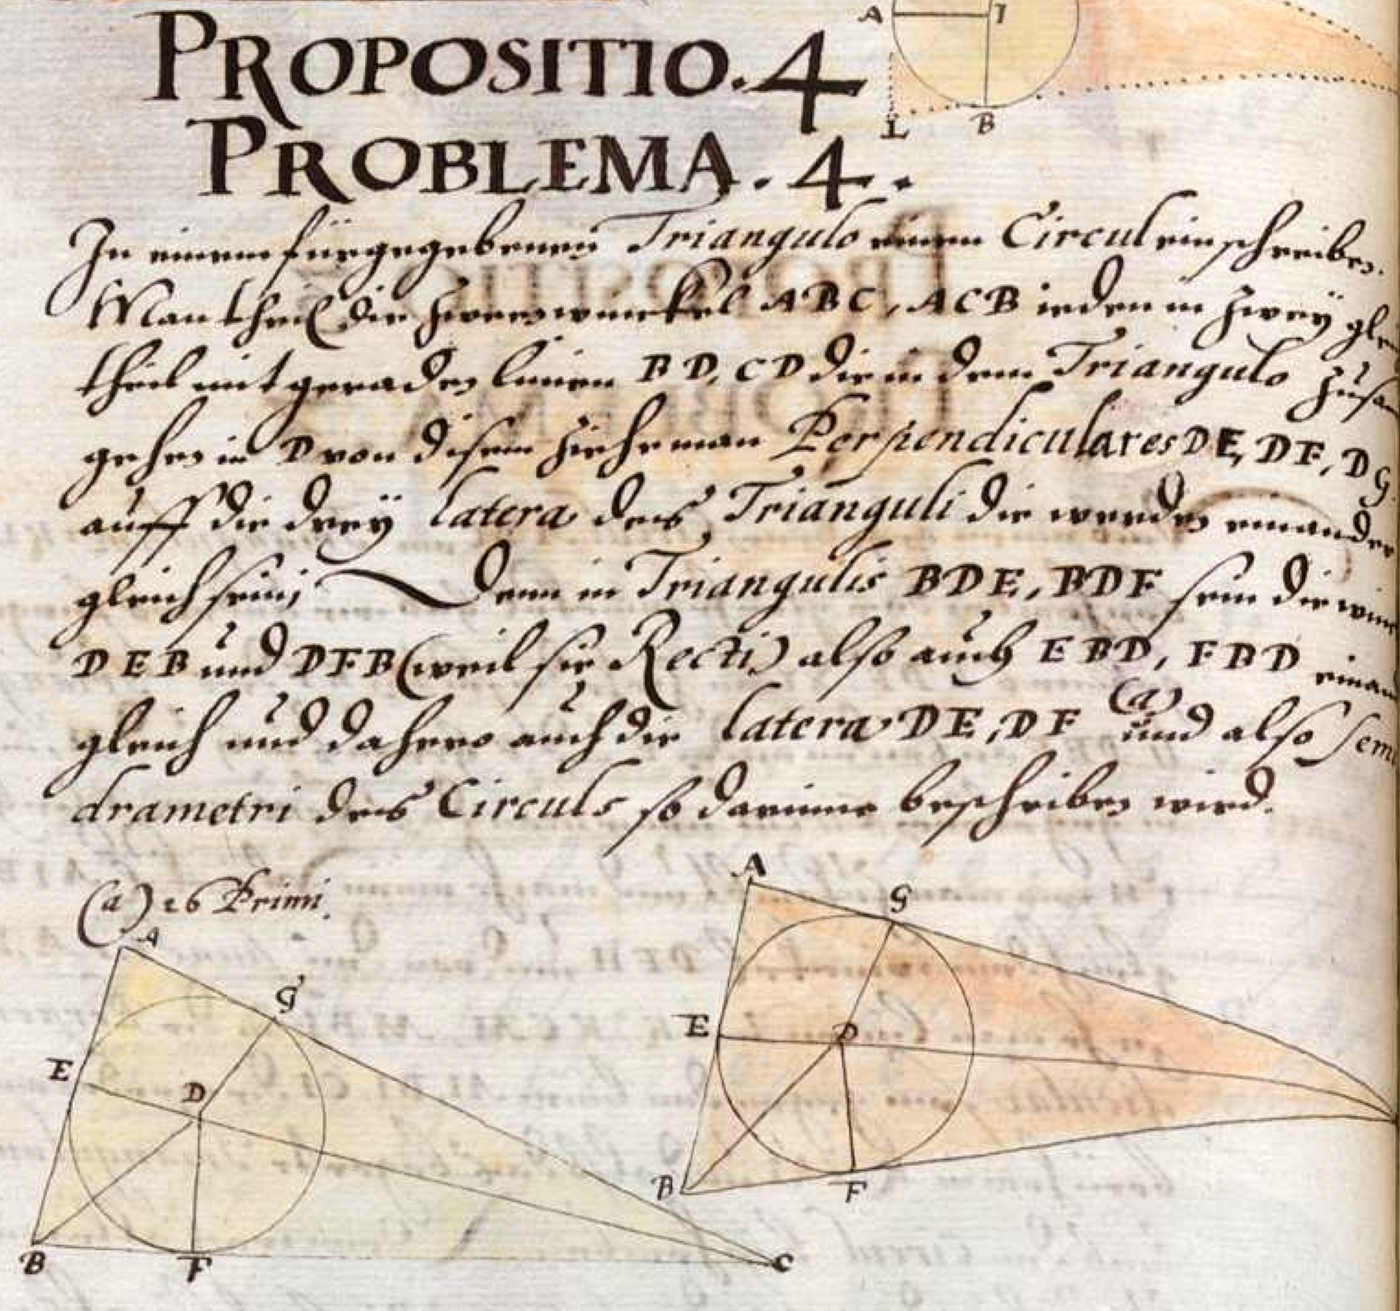 A I
L B
PROPOSITIO. 4
PROBLEMA. 4.
In einem fürgegebenen Triangulo einen Circul einschreiben.
Man theil die zwen winckel ABC, ACB ieden in zweÿ gle
theil mit geraden linien BD, CD die in dem Triangulo zusa
gehen in D von disem ziehe man Perpendiculares DE, DF, DG
auff die dreÿ latera des Trianguli die werden einander
gleich sein; Denn in Triangulis BDE, BDF sein die win
DEB und DFB (weil sie Recti) also auch EBD, FBD einan
gleich und dahero auch die latera DE, DF (a) und also Semi
diametri des Circuls so darinne beschrieben wird.
(a) 26 Primi.
A G E D B F C
A G E D B F